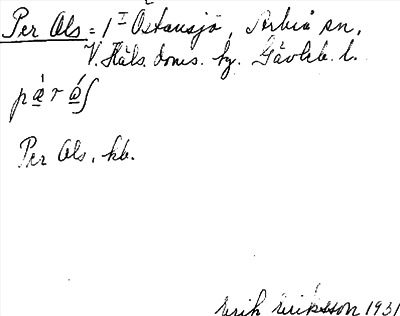 Per Ols = 1 I Östansjö, Arbrå sn,
V. Häls. doms. hg. Gävleb. l.
pǽrǻʃ
Per Ols, kb.
Erik Eriksson 1931